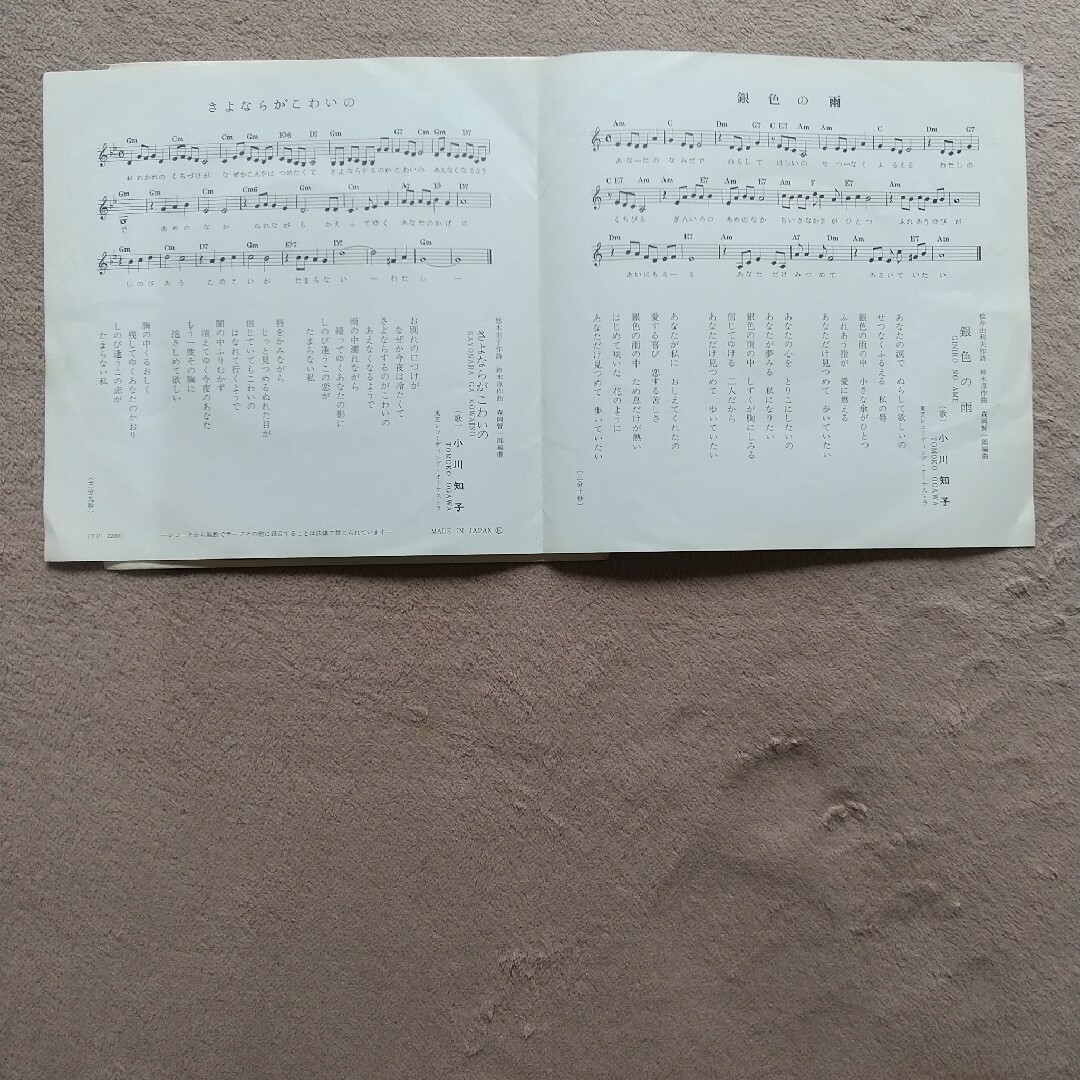 銀色の雨
Am C Dm G7 C E7 Am Am C Dm G7
あなーたの なみだで ぬらして ほしいの せつーなく ふるえる わたしの
C E7 Am Am E7 Am E7 Am E7 Am
くちびる ぎんいろの あめのなか ちいさなかさが ひとつ ふれあうゆびが
Dm E7 Am A7 Dm Am E7 Am
あいにもえーる あなた だけみつめて あるいて いたい
銀色の雨
GINIRO NO AME
鈴木淳作曲
森岡賢一郎編曲
(歌) 小川知子
TOMOKO OGAWA
東芝レコーディング・オーケストラ
あなたの涙で ぬらして欲しいの
せつなくふるえる 私の唇
銀色の雨の中 小さな傘がひとつ
ふれあう指が 愛に燃える
あなただけ見つめて 歩いていたい
あなたの心を とりこにしたいの
あなたが夢みる 私になりたい
銀色の雨の中 しずくが胸にしみる
信じてゆける 二人だから
あなただけ見つめて 歩いていたい
あなたが私に おしえてくれたの
愛する喜び 恋する苦しさ
銀色の雨の中 ため息だけが熱い
はじめて咲いた 花のように
あなただけ見つめて 歩いていたい
(三分十秒)
さよならがこわいの
Gm Cm Cm Gm E♭6 D7 Gm G7 Cm Gm D7
おわかれの くちづけが なぜかこんやは つめたくて さよならするのが こわいの あえなくなるよう
Gm Gm Cm Cm6 Gm Cm D7
で あめの なか ぬれながら かえってゆく あなたのかげに
Gm Cm D7 Gm E♭7 D7 Gm
しのびあう このこいが たまらない ーわたしー
さよならがこわいの
SAYONARA GA KOWAINO
鈴木淳作曲
森岡賢一郎編曲
(歌) 小川知子
TOMOKO OGAWA
東芝レコーディング・オーケストラ
お別れの口づけが
なぜか今夜は冷たくて
さよならするのがこわいの
あえなくなるようで
雨の中濡れながら
帰ってゆくあなたの影に
しのび逢うこの恋が
たまらない私
唇をかみながら
じっと見つめるぬれた目が
信じていてもこわいの
はなれて行くようで
闇の中ふりむかず
消えてゆく今夜のあなた
もう一度その胸に
抱きしめて欲しい
胸の中くるおしく
残してゆくあなたのかおり
しのび逢うこの恋が
たまらない私
(三分九秒)
MADE IN JAPAN
―レコードから無断でテープその他に録音することは法律で禁じられています―